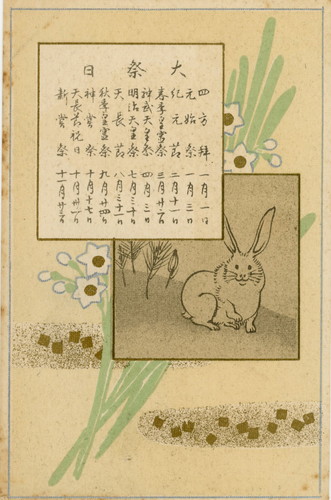 大祭日
四方拜 一月一日
元始祭 一月三日
紀元節 二月十一日
春季皇霊祭 三月廿一日
神武天皇祭 四月三日
明治天皇祭 七月三十日
天長節 八月三十一日
秋季皇霊祭 九月廿四日
神嘗祭 十月十七日
天長節祝日 十月卅一日
新嘗祭 十一月廿三日